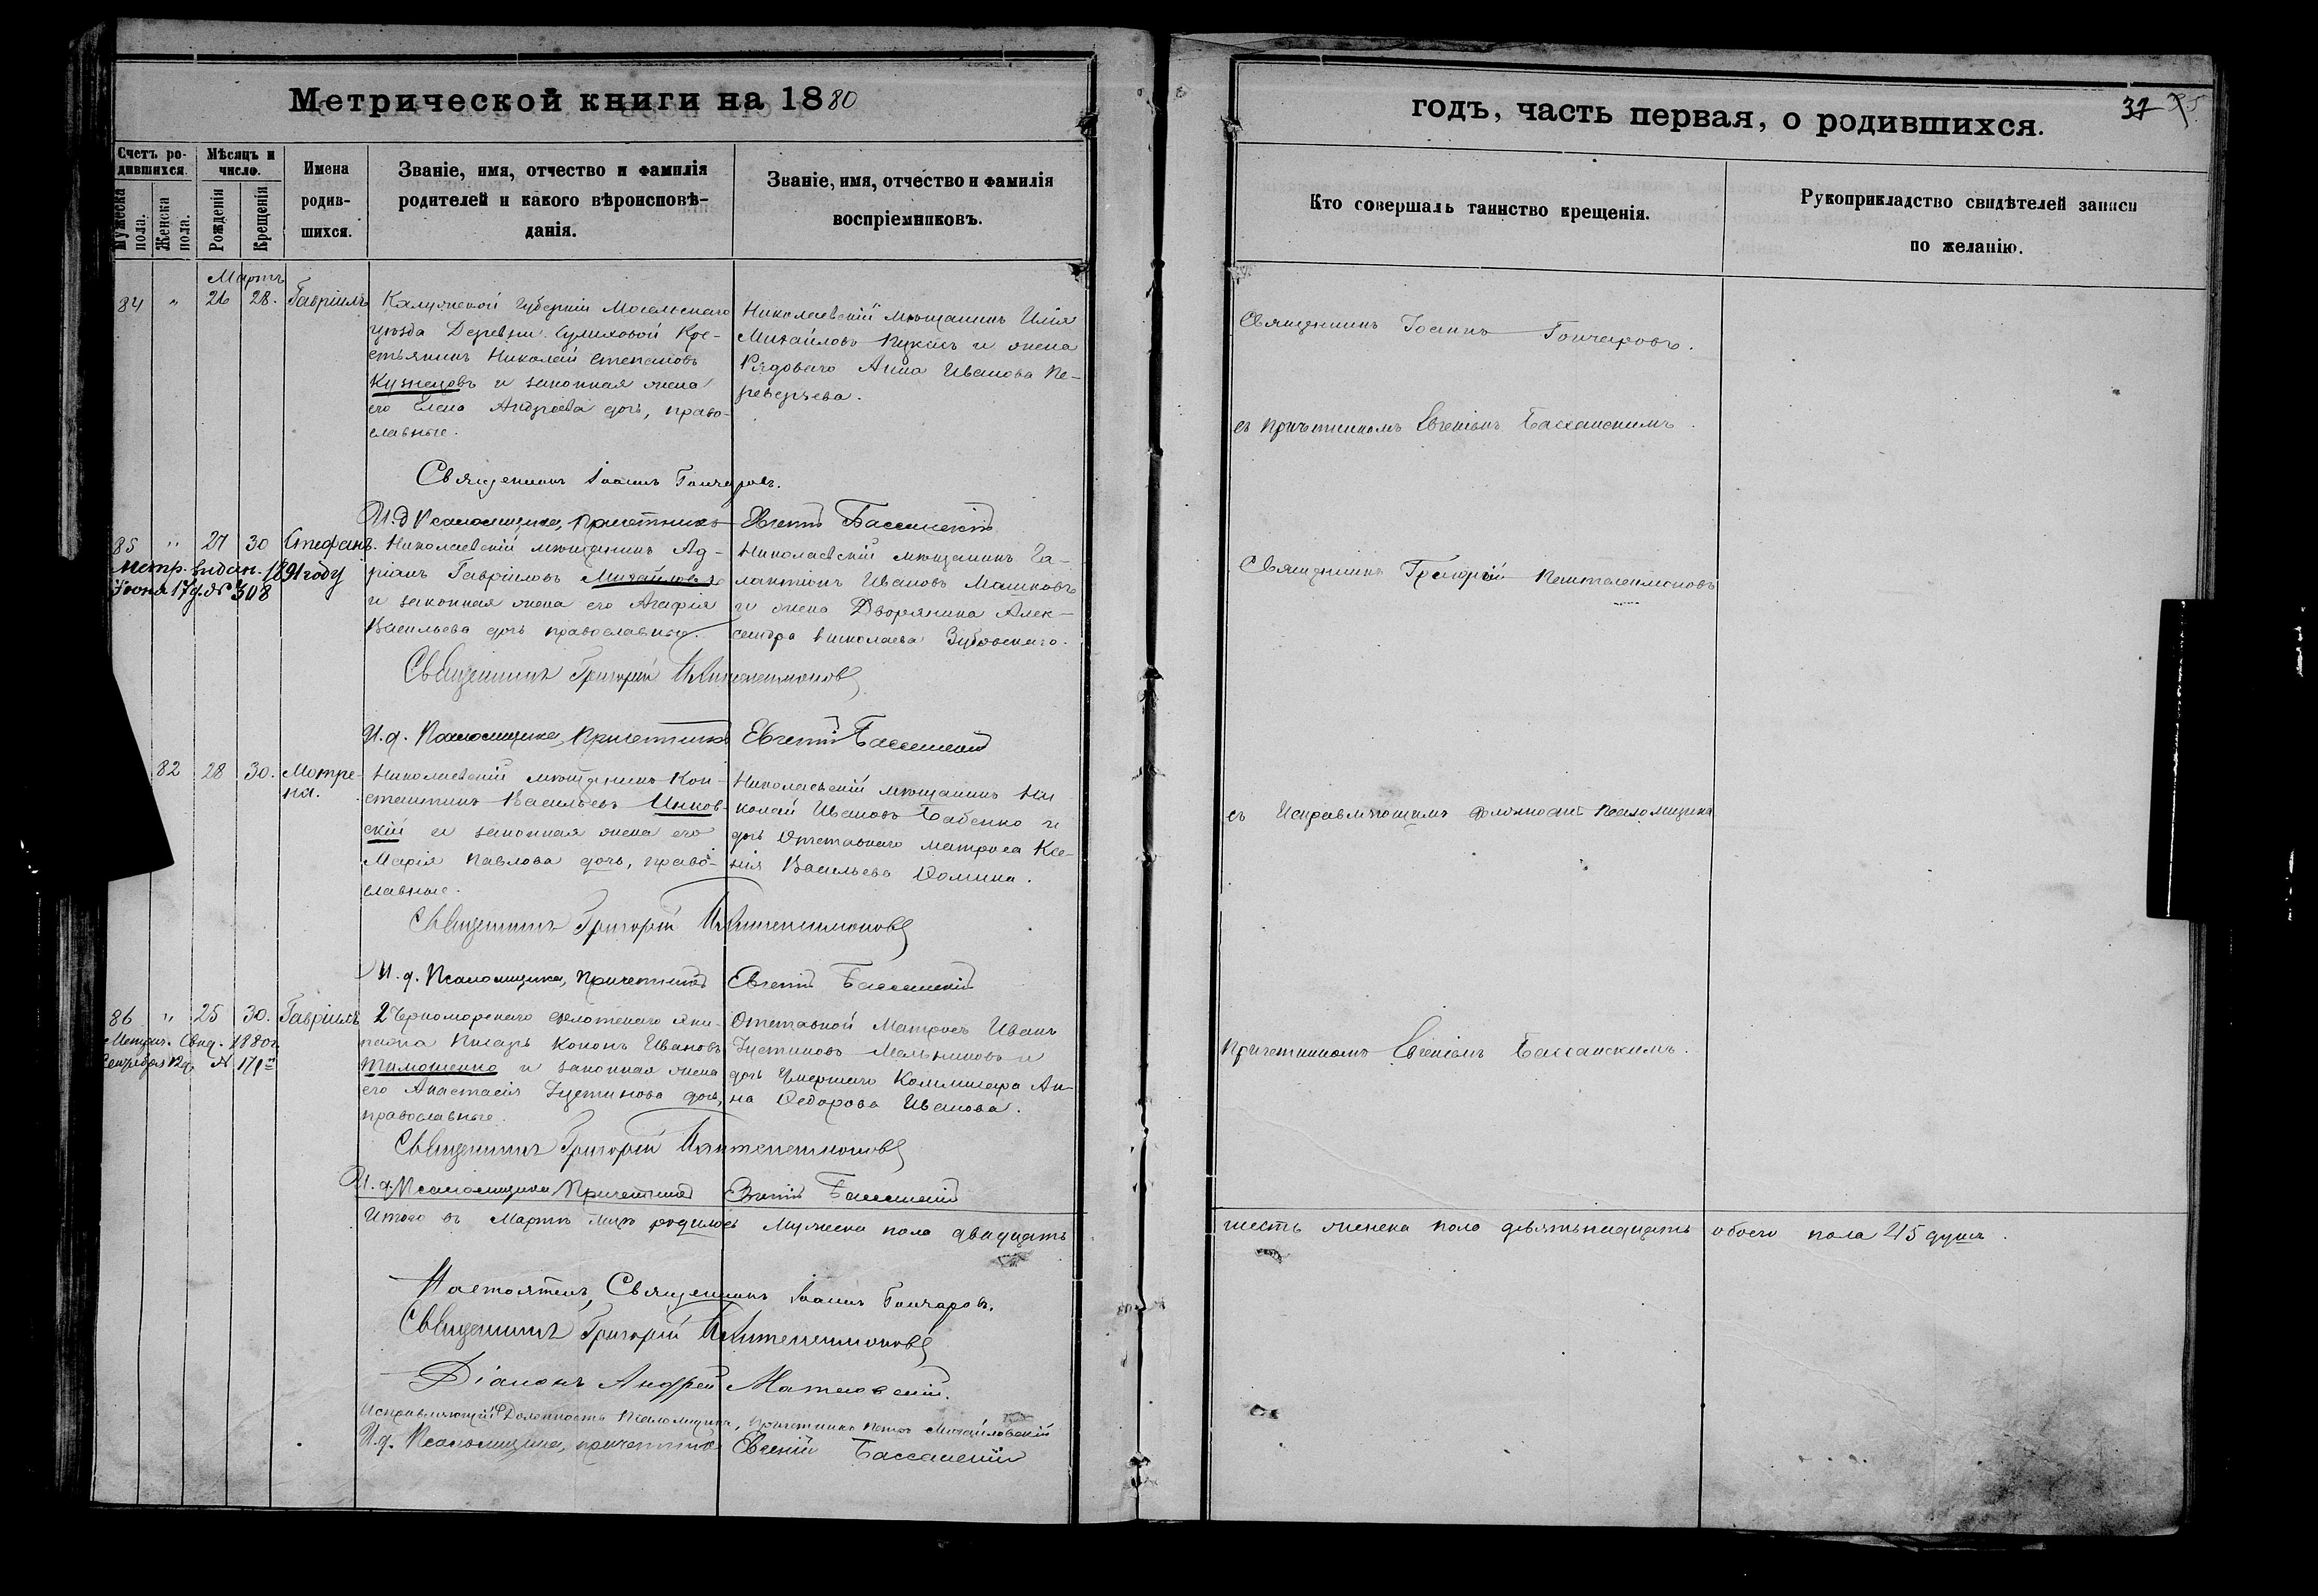 Метрической книги на 1880
годъ, часть первая, о родившихся.
37
Счетъ ро-
дившихся.
Мужеска
пола.
Женска
пола.
Мѣсяцъ и
число.
Рожденія
Крещенія
Имена
родив-
шихся.
Званіе, имя, отчество и фамилія
родителей и какого вѣроисповѣ-
данія.
Званіе, имя, отчество и фамилія
воспріемниковъ.
Кто совершалъ таинство крещенія.
Рукоприкладство свидѣтелей записи
по желанію.
Мартъ
84 " 26 28. Гавріилъ
Калужской Губерніи Мосальскаго
уѣзда Деревни Сулиховой Кре-
стьянинъ Николай Степановъ
Кузнецовъ и законная жена
его Елена Андреева дочь, право-
славные.
Николаевскій мѣщанинъ Илія
Михайловъ и жена
Рядоваго Анна Иванова Пе-
реверзева.
Священникъ Іоаннъ Гончаровъ.
съ Причетникомъ Евгеніемъ Бассанскимъ.
Священникъ Іоаннъ Гончаровъ.
И.д Псаломщика, Причетникъ Евгеній Бассанскій
85 " 27 30 Стефанъ.
Метр. выдан. 1891 году
Іюня 17 д. № 308
Николаевскій мѣщанинъ Ад-
ріанъ Гавріиловъ Михайловъ
и законная жена его Агафія
Васильева дочь православные.
Николаевскій мѣщанинъ Га-
лактіонъ Ивановъ Машковъ
и жена Дворянина Алек-
сандра Николаева Зубовскаго.
Священникъ Григорій Пантелеимоновъ
Священникъ Григорій Пантелеимоновъ
И.д. Псаломщика, Причетникъ Евгеній Бассанскій
82 28 30. Мотре-
на.
Николаевскій мѣщанинъ Кон-
стантинъ Васильевъ Инков-
скій и законная жена его
Марія Павлова дочь, право-
славные.
Николаевскій мѣщанинъ Ни-
колай Ивановъ Бабенко и
дочь Отставнаго матроса Ксе-
нія Васильева Ѳомина.
съ Исправляющимъ должность Псаломщика
Священникъ Григорій Пантелеимоновъ
И.д. Псаломщика, Причетникъ Евгеній Бассанскій
86 " 25 30. Гавріилъ
Метрич. Свид. 1880 г.
Сентября 12 д. № 171
2 Черноморскаго флотскаго эки-
пажа Писарь Кононъ Ивановъ
Тимошенко и законная жена
его Анастасія Іустинова дочь,
православные.
Отставной Матросъ Иванъ
Іустиновъ Мельниковъ и
дочь Умершаго Коммисара Ан-
на Ѳедорова Иванова.
Причетникомъ Евгеніемъ Бассанскимъ.
Священникъ Григорій Пантелеимоновъ
И.д. Псаломщика Причетникъ Евгеній Бассанскій
Итого въ Мартѣ м-цѣ родилось Мужеска пола двадцать
шесть женска пола девятьнадцать обоего пола 45 душъ.
Настоятель, Священникъ Іоаннъ Гончаровъ.
Священникъ Григорій Пантелеимоновъ
Діаконъ Андрей
Исправляющій Должность Псаломщика, Причетникъ Петръ Михайловскій
И.д. Псаломщика, причетникъ Евгеній Бассанскій